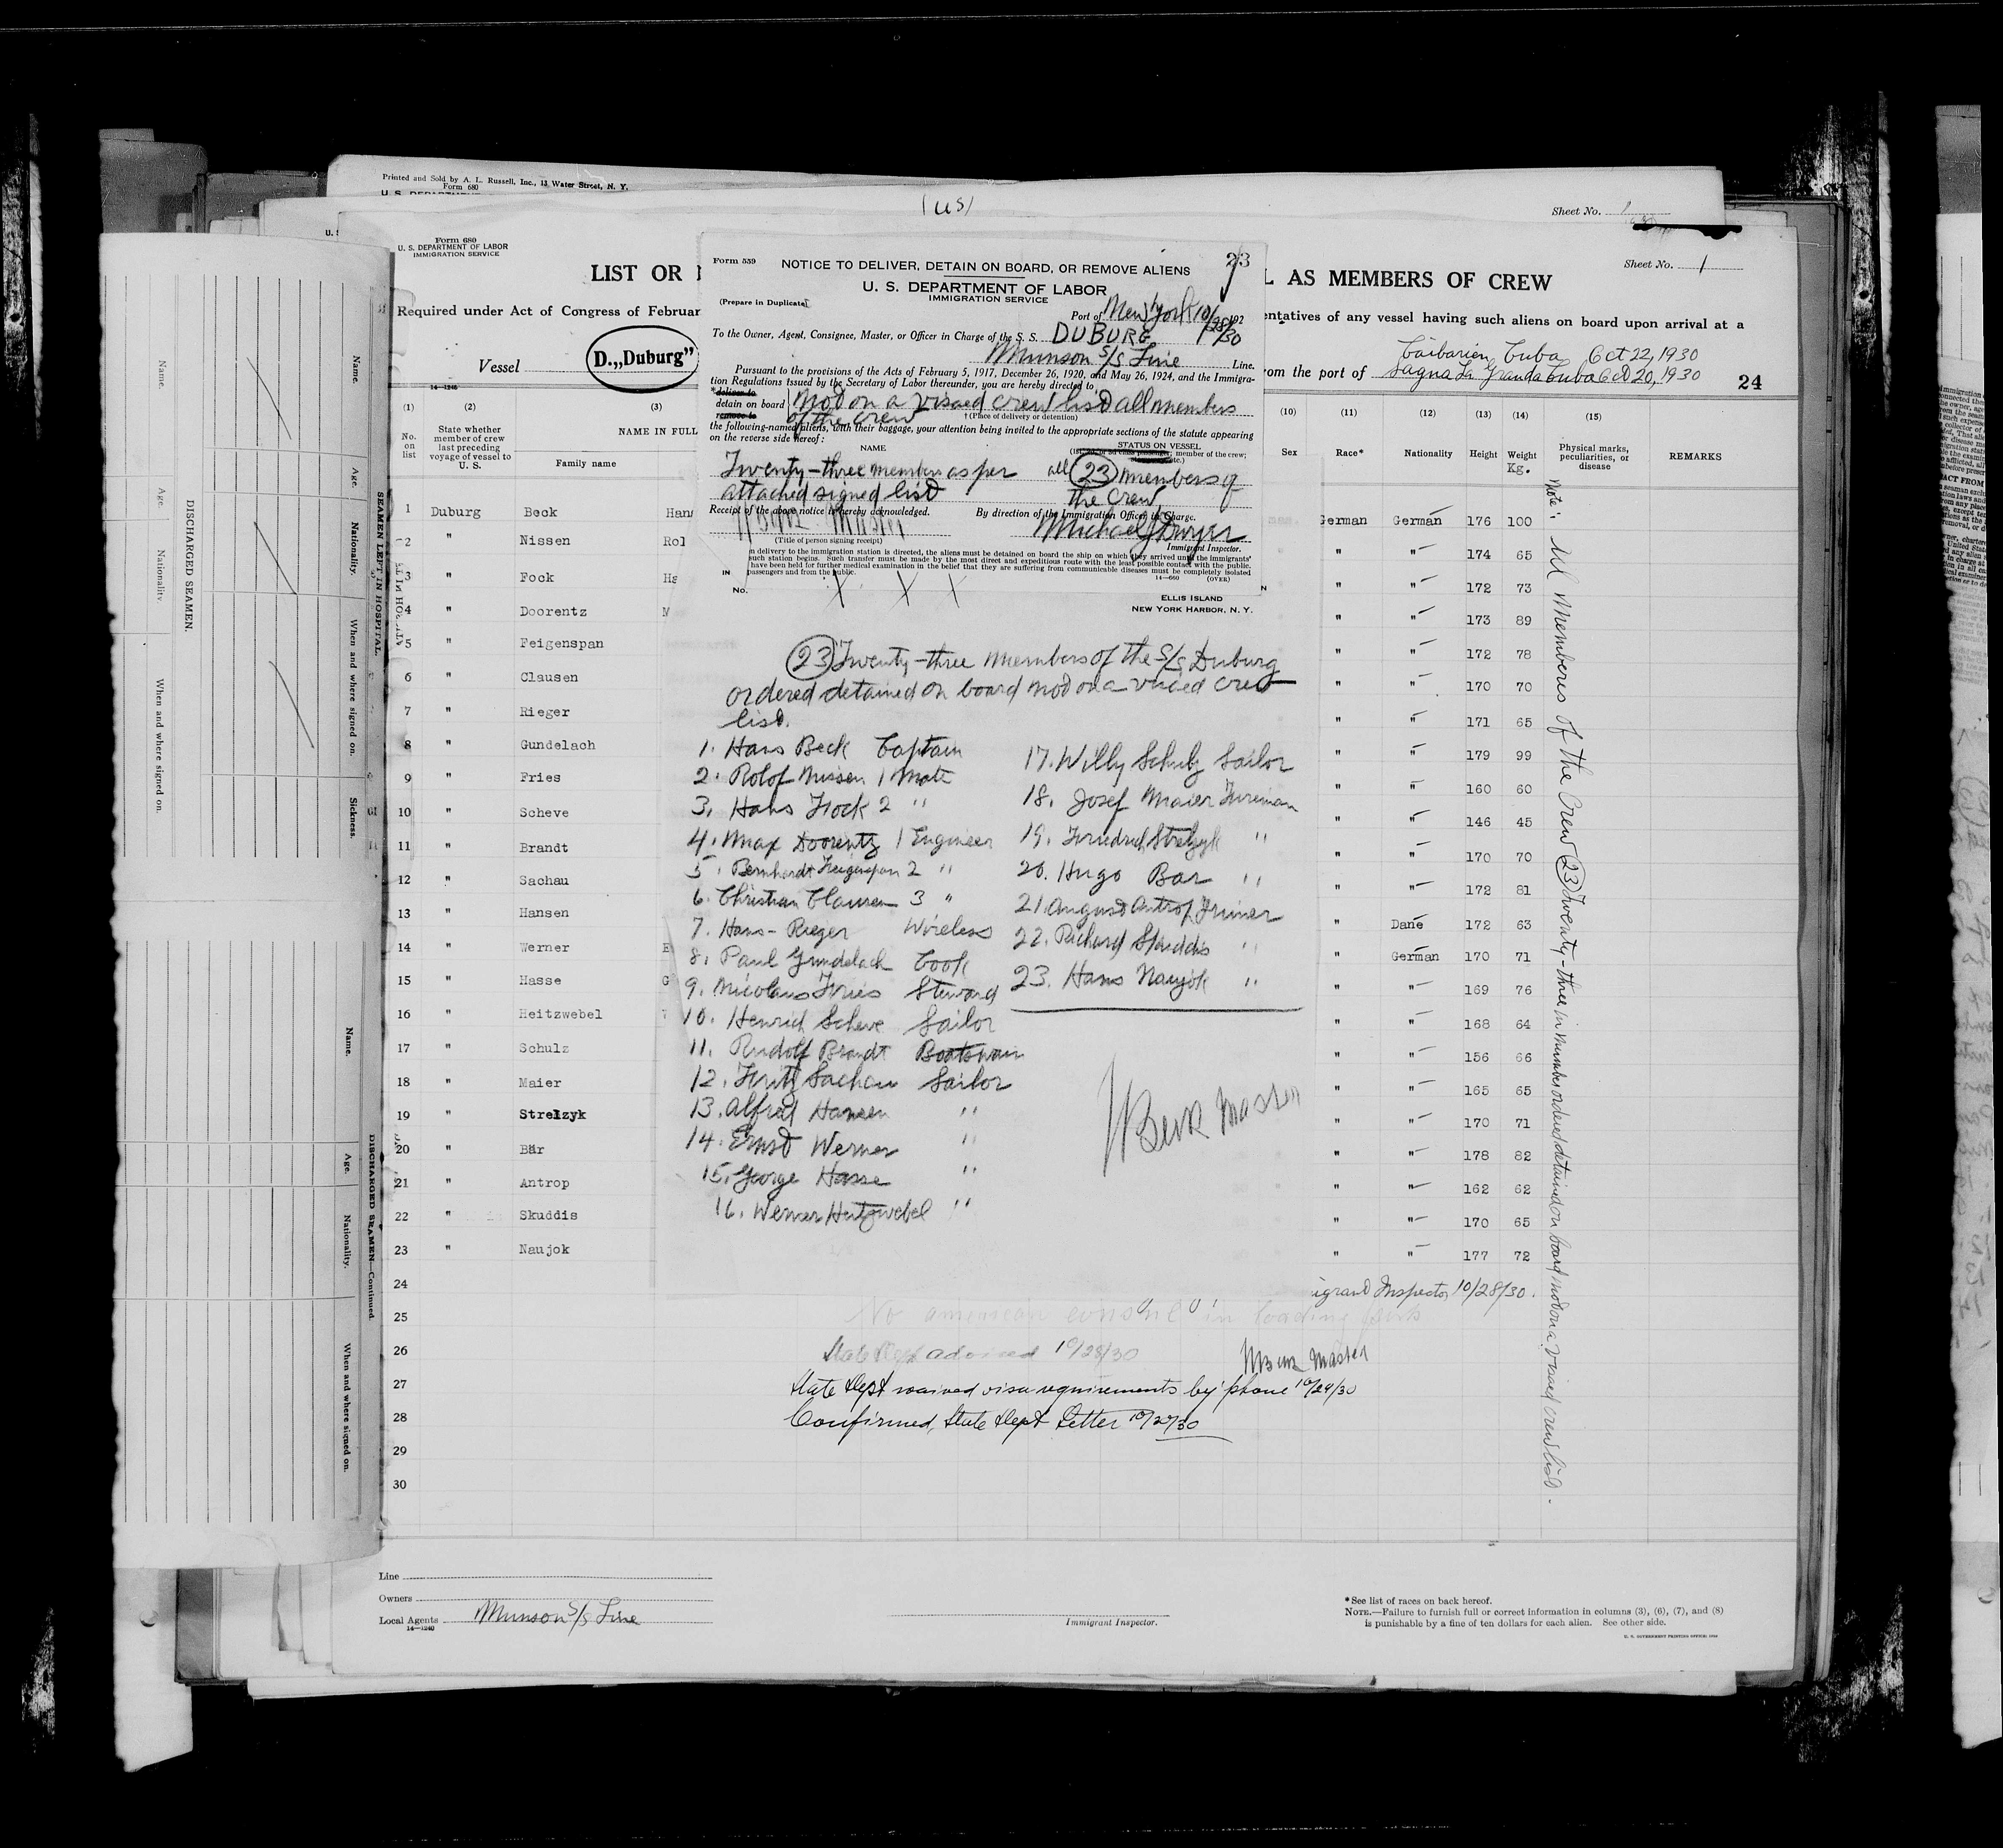 Printed and Sold by A. L. Russell, Inc., 13 Water Street, N. Y.
Form 680
Sheet No.
Form 680
U. S. DEPARTMENT OF LABOR
IMMIGRATION SERVICE
LIST OR
L AS MEMBERS OF CREW
Sheet No. 1
Required under Act of Congress of Februar
entatives of any vessel having such aliens on board upon arrival at a
Vessel D.„Duburg”
Caibarien Cuba Oct 22, 1930
om the port of Sagua La Granda Cuba Oct 20, 1930
24
14-1240
(1) (2) (3) (10) (11) (12) (13) (14) (15)
No. on list
State whether member of crew last preceding voyage of vessel to U. S.
NAME IN FULL
Family name
Sex Race* Nationality Height Weight Kg.
Physical marks, peculiarities, or disease
REMARKS
1 Duburg Beck Han German German 176 100
2 " Nissen Rol " " 174 65
3 " Fock Ha " " 172 73
4 " Doorentz M " " 173 89
5 " Feigenspan " " 172 78
6 " Clausen " " 170 70
7 " Rieger " " 171 65
8 " Gundelach " " 179 99
9 " Fries " " 160 60
10 " Scheve " " 146 45
11 " Brandt " " 170 70
12 " Sachau " " 172 81
13 " Hansen " Dane 172 63
14 " Werner E " German 170 71
15 " Hasse G " " 169 76
16 " Heitzwebel " " 168 64
17 " Schulz " " 156 66
18 " Maier " " 165 65
19 " Strelzyk " " 170 71
20 " Bär " " 178 82
21 " Antrop " " 162 62
22 " Skuddis " " 170 65
23 " Naujok " " 177 72
24
25
26
27
28
29
30
Note: All Members of the Crew 23 Twenty-three in number ordered detained on board not on a visaed crew list.
Form 539
23
NOTICE TO DELIVER, DETAIN ON BOARD, OR REMOVE ALIENS
U. S. DEPARTMENT OF LABOR
IMMIGRATION SERVICE
(Prepare in Duplicate)
Port of New York 10/28/30 192
To the Owner, Agent, Consignee, Master, or Officer in Charge of the S. S. DUBURG
Munson S/S Line Line.
Pursuant to the provisions of the Acts of February 5, 1917, December 26, 1920, and May 26, 1924, and the Immigra-
tion Regulations issued by the Secretary of Labor thereunder, you are hereby directed to
*deliver to
detain on board Not on a visaed crew list all members
remove to of the crew †(Place of delivery or detention)
the following-named aliens, with their baggage, your attention being invited to the appropriate sections of the statute appearing
on the reverse side hereof:
NAME STATUS ON VESSEL
Twenty-three members as per all 23 members of
attached signed list the crew
Receipt of the above notice is hereby acknowledged. By direction of the Immigration Officer in Charge.
H Beck Master Michael J Dwyer
(Title of person signing receipt) Immigrant Inspector.
n delivery to the immigration station is directed, the aliens must be detained on board the ship on which they arrived until the immigrants'
such station begins. Such transfer must be made by the most direct and expeditious route with the least possible contact with the public.
have been held for further medical examination in the belief that they are suffering from communicable diseases must be completely isolated
passengers and from the public. 14-660 (OVER)
No.
ELLIS ISLAND
NEW YORK HARBOR, N. Y.
23 Twenty-three members of the S/S Duburg
ordered detained on board not on a visaed crew
list.
1. Hans Beck Captain
2. Rolof Nissen 1 Mate
3. Hans Fock 2 "
4. Max Doorentz 1 Engineer
5. Bernhardt Feigenspan 2 "
6. Christian Clausen 3 "
7. Hans - Rieger Wireless
8. Paul Gundelach Cook
9. Nicolaus Fries Steward
10. Henrich Scheve Sailor
11. Rudolf Brandt Boatswain
12. Fritz Sachau Sailor
13. Alfred Hansen "
14. Ernst Werner "
15. George Hasse "
16. Werner Heitzwebel "
17. Willy Schulz Sailor
18. Josef Maier Fireman
19. Friedrich Strelzyk "
20. Hugo Bar "
21. August Antrop Trimer
22. Richard Skuddis "
23. Hans Naujok "
H Beck Master
igrant Inspector 10/28/30.
No american consul in loading ports
State Dept advised 10/28/30
H Beck Master
State Dept waived visa requirements by phone 10/29/30
Confirmed, State Dept Letter 10/29/30
Line
Owners
Local Agents Munson S/S Line
14-1240
Immigrant Inspector.
*See list of races on back hereof.
NOTE.—Failure to furnish full or correct information in columns (3), (6), (7), and (8)
is punishable by a fine of ten dollars for each alien. See other side.
U. S. GOVERNMENT PRINTING OFFICE
DISCHARGED SEAMEN.
SEAMEN LEFT IN HOSPITAL.
Name. Age. Nationality. When and where signed on. Sickness.
DISCHARGED SEAMEN—Continued.
Name. Age. Nationality. When and where signed on.